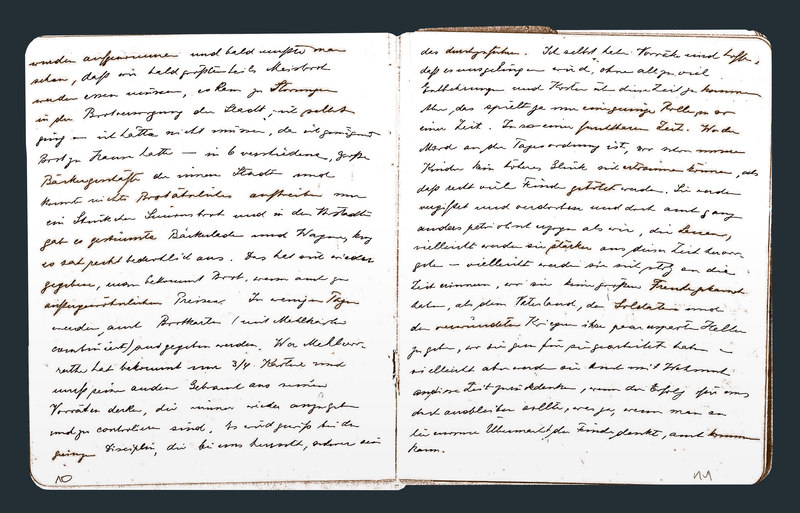 werden aufgenommen und bald mußte man
sehen, daß wir bald größtenteils Maisbrot
werden essen müssen, es kam zu Störungen
in der Brotversorgung der Stadt, ich selbst
ging – ich hätte nicht müssen, da ich genügend
Brot zu Hause hatte – in 6 verschiedene, große
Bäckergeschäfte der innern Stadt und
konnte nichts Brotähnliches auftreiben nur
ein Stück und in der Vorstadt
gab es gestürmte Bäckerladen und Wagen, kurz
es sah recht bedrohlich aus. Das hat sich wieder
gegeben, man bekommt Brot, wenn auch zu
außergewöhnlichen Preisen. In wenigen Tagen
werden auch Brotkarten (mit Mehlkarten
combiniert) ausgegeben werden. Wer Mehlvor-
räthe hat bekommt nur 3/4 Karten und
muß seine andern Gebrauch aus seinen
Vorräten decken, die immer wieder anzugeben
und zu controlieren sind. Es wird gewiß bei der
Disciplin, die bei uns herrscht, schwer sein
10
das durchzuführen. Ich selbst habe Vorräte und hoffe,
daß es uns gelingen wird, ohne allzu viel
Entbehrungen und Kosten über die Zeit zu kommen
das spielt ja nur eine geringe Rolle in so
einer Zeit. In so einer furchtbaren Zeit. Wo der
Mord an der Tagesordnung ist, wo schon unsere
Kinder kein höheres Glück sich ersinnen können, als
daß recht viel Feinde getötet werden. Sie werden
vergiftet und verdorben und doch auch ganz
anders patriotisch erzogen als wir, die
vielleicht werden sie stärker aus dieser Zeit hervor
gehn – vielleicht werden sie mit stolz an die
Zeit erinnern, wo sie kein größere Freude gekannt
haben, als dem Vaterland, den Soldaten und
den verwundeten Kriegern ihre paar ersparten Heller
zu geben, wo sie gern für sie gearbeitet haben –
vielleicht aber werden sie auch mit Wehmut
an diese Zeit zurückdenken, wenn der Erfolg für uns
doch ausbleiben sollte, was ja, wenn man an
die enorme Übermacht der Feinde denkt, auch kommen
kann.
11